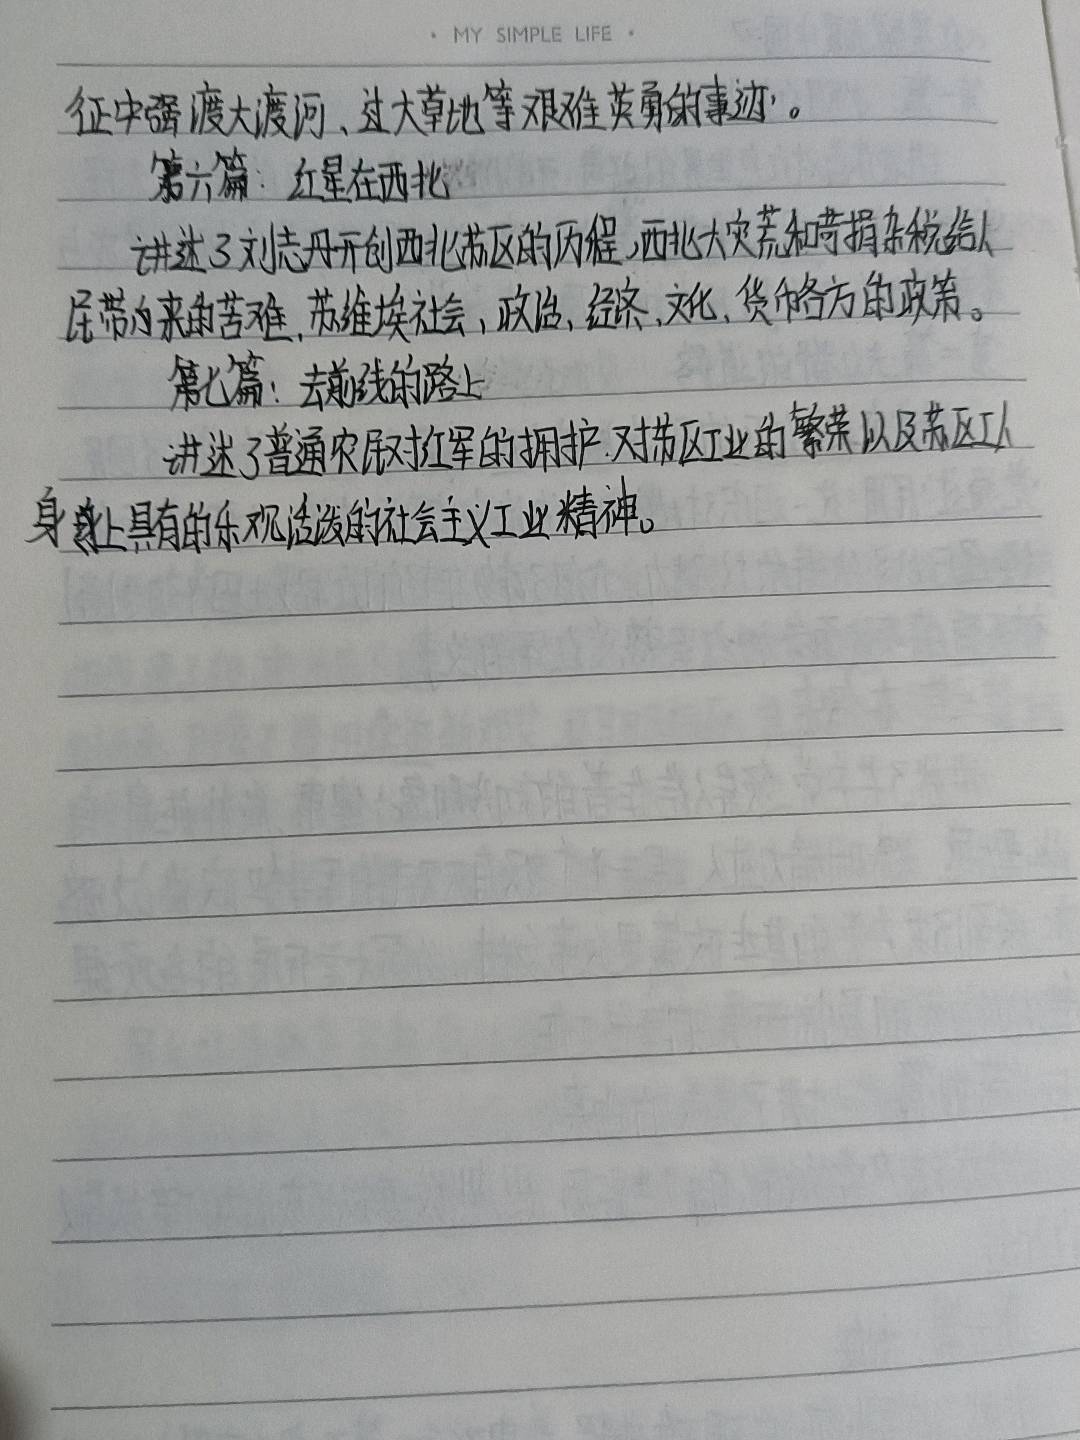 · MY SIMPLE LIFE ·
征中强渡大渡河、过大草地等艰难英勇的事迹。
第六篇：红星在西北
讲述了刘志丹开创西北苏区的历程,西北大灾荒和苛捐杂税给人
民带来的苦难,苏维埃社会、政治、经济、文化、货币各方的政策。
第七篇：去前线的路上
讲述了普通农民对红军的拥护.对苏区工业的繁荣以及苏区工人
身上具有的乐观活泼的社会主义工业精神。